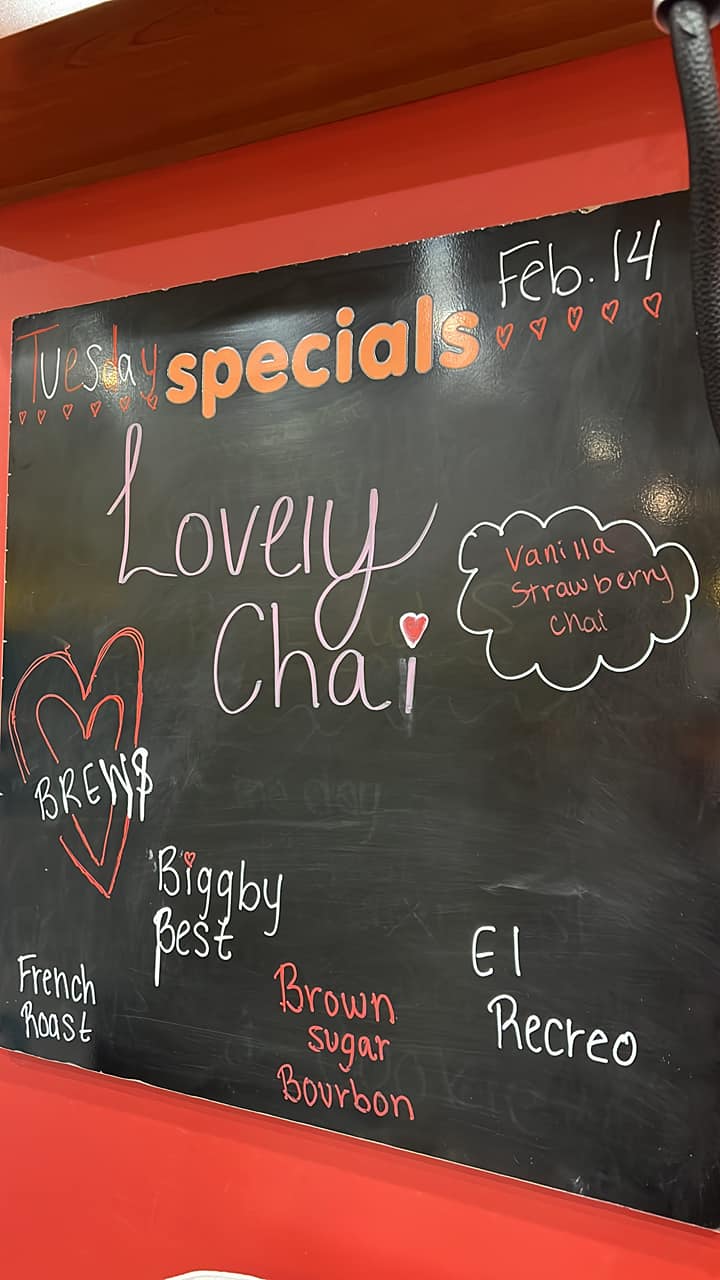 Tuesday specials Feb. 14
Lovely
Chai
Vanilla
Strawberry
chai
BREWS
Biggby
Best
French
Roast
Brown
sugar
Bourbon
El
Recreo